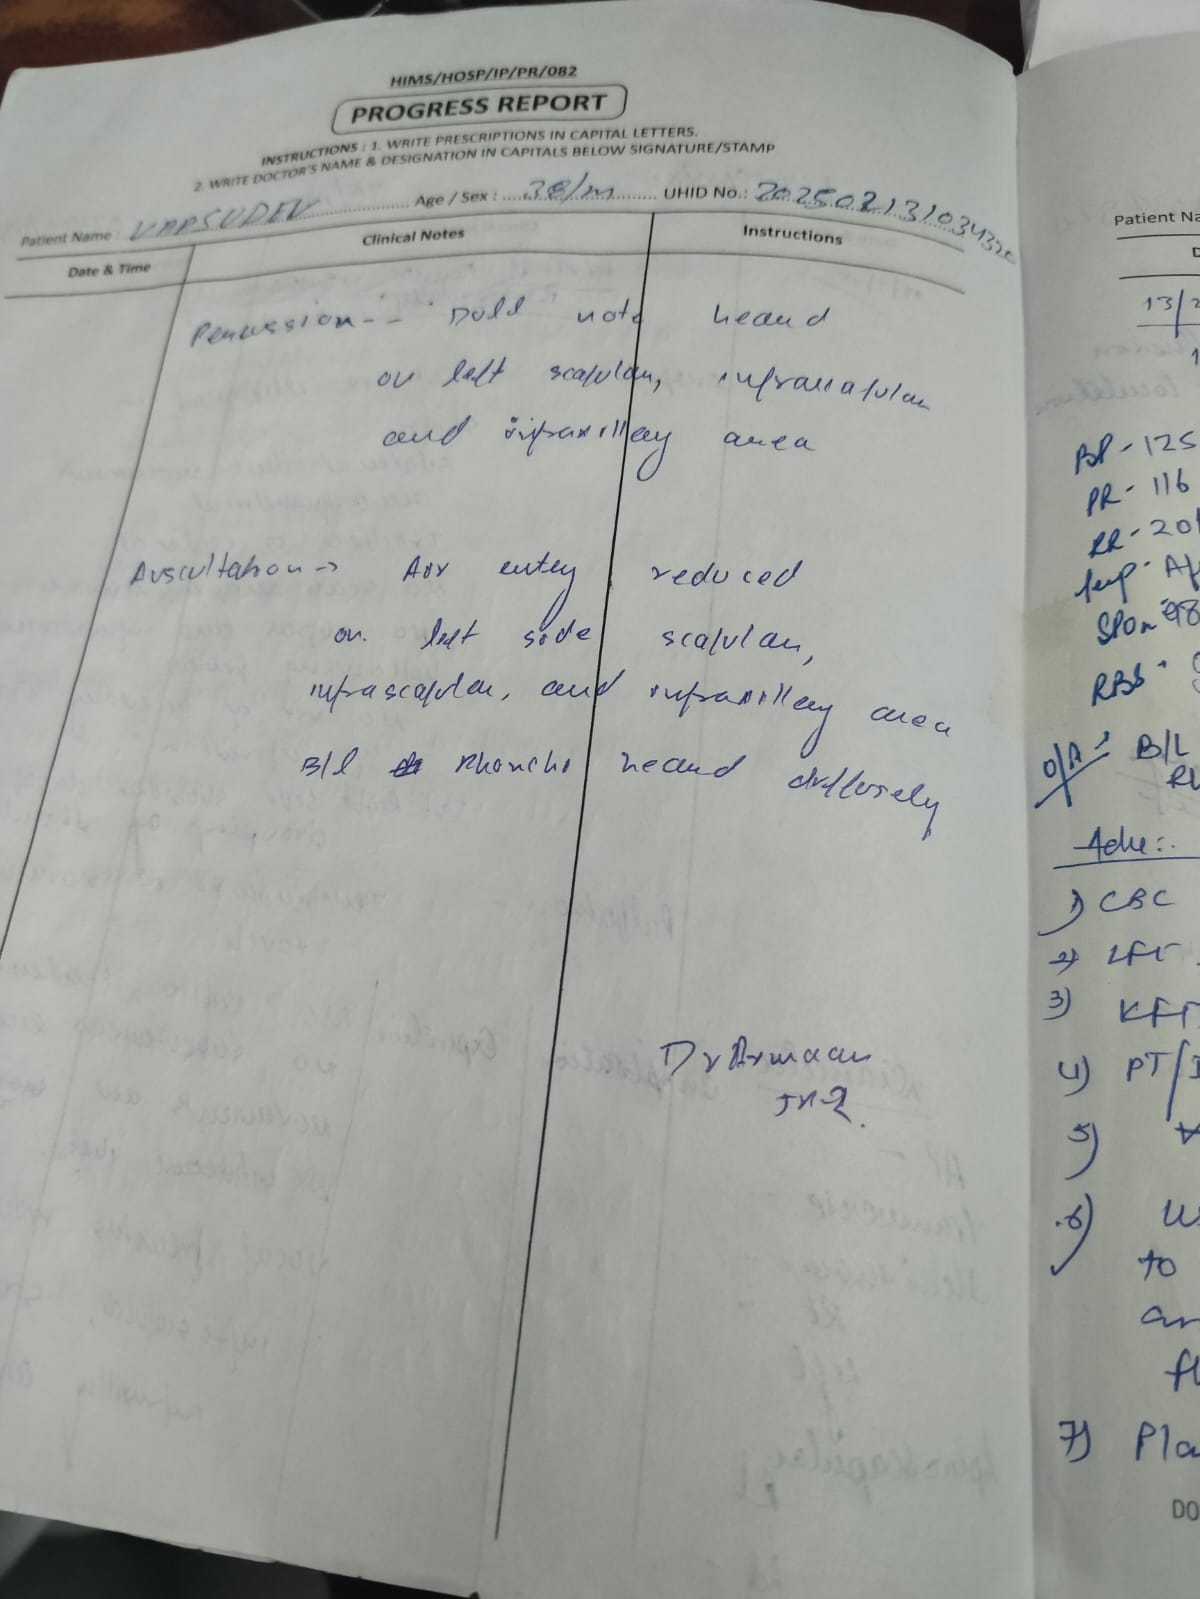 HIMS/HOSP/IP/PR/082
PROGRESS REPORT
INSTRUCTIONS : 1. WRITE PRESCRIPTIONS IN CAPITAL LETTERS.
2. WRITE DOCTOR'S NAME & DESIGNATION IN CAPITALS BELOW SIGNATURE/STAMP
Patient Name : VAPSUDEV Age / Sex : 38/m UHID No.:
Date & Time Clinical Notes Instructions
Percussion -- Dull note heard
on left scapular, infrascapular
and infraxillay area
Auscultation -> Air entry reduced
on left side scapular,
infrascapular, and infraxillay area
B/l Rhonchi heard diffusely
Dr Armaan
JR2
Patient Na
D
13/2
1
BP - 125
PR - 116
RR - 20/
Temp - Af
RBS -
O/A B/L
Adv :-
1) CBC
2) LFT
3) KFT
4) PT/I
5)
6)
to
7) Pla
DO